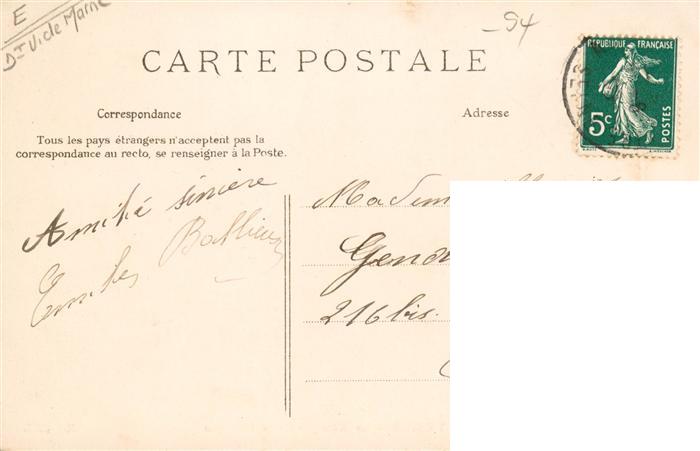 E
Dt V. de Marne
94
CARTE POSTALE
RÉPUBLIQUE FRANÇAISE
5c
POSTES
Correspondance
Adresse
Tous les pays étrangers n'acceptent pas la
correspondance au recto, se renseigner à la Poste.
Amitié sincère
Madam
Gend
216 bis.